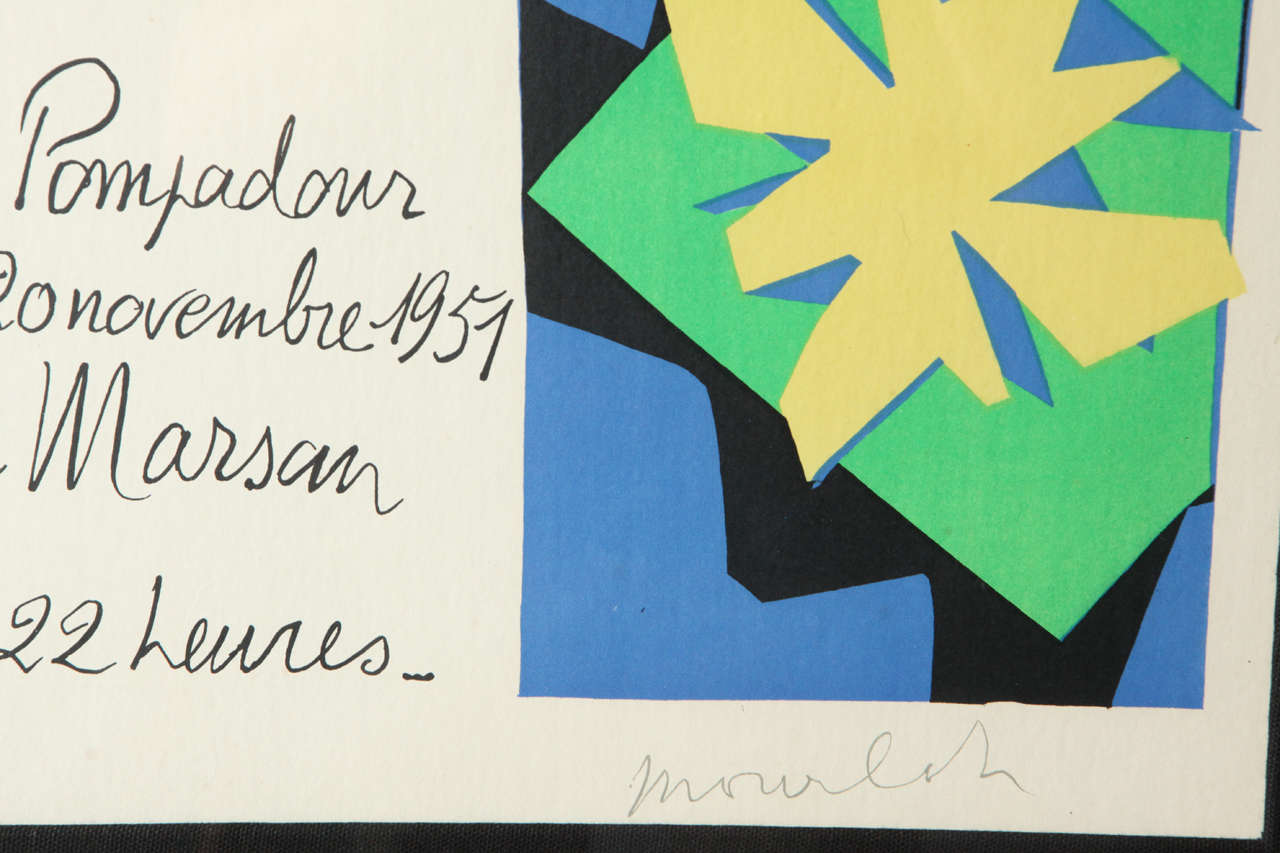 Pompadour
20 novembre 1951
Marsan
22 heures_
mourlot